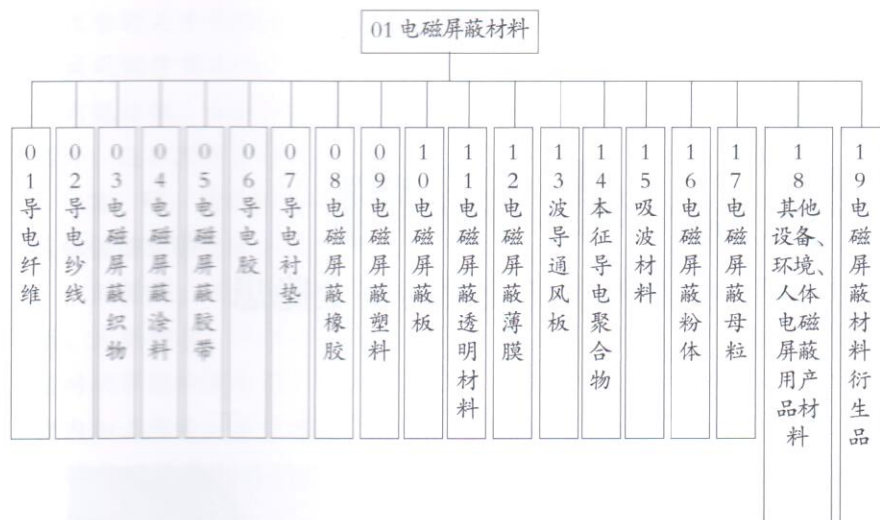 01 电磁屏蔽材料
01导电纤维
02导电纱线
03电磁屏蔽织物
04电磁屏蔽涂料
05电磁屏蔽胶带
06导电胶
07导电衬垫
08电磁屏蔽橡胶
09电磁屏蔽塑料
10电磁屏蔽板
11电磁屏蔽透明材料
12电磁屏蔽薄膜
13波导通风板
14本征导电聚合物
15吸波材料
16电磁屏蔽粉体
17电磁屏蔽母粒
18
其他
设备、
环境、
人体
电磁
屏蔽
用产
品材
料
19电磁屏蔽材料衍生品